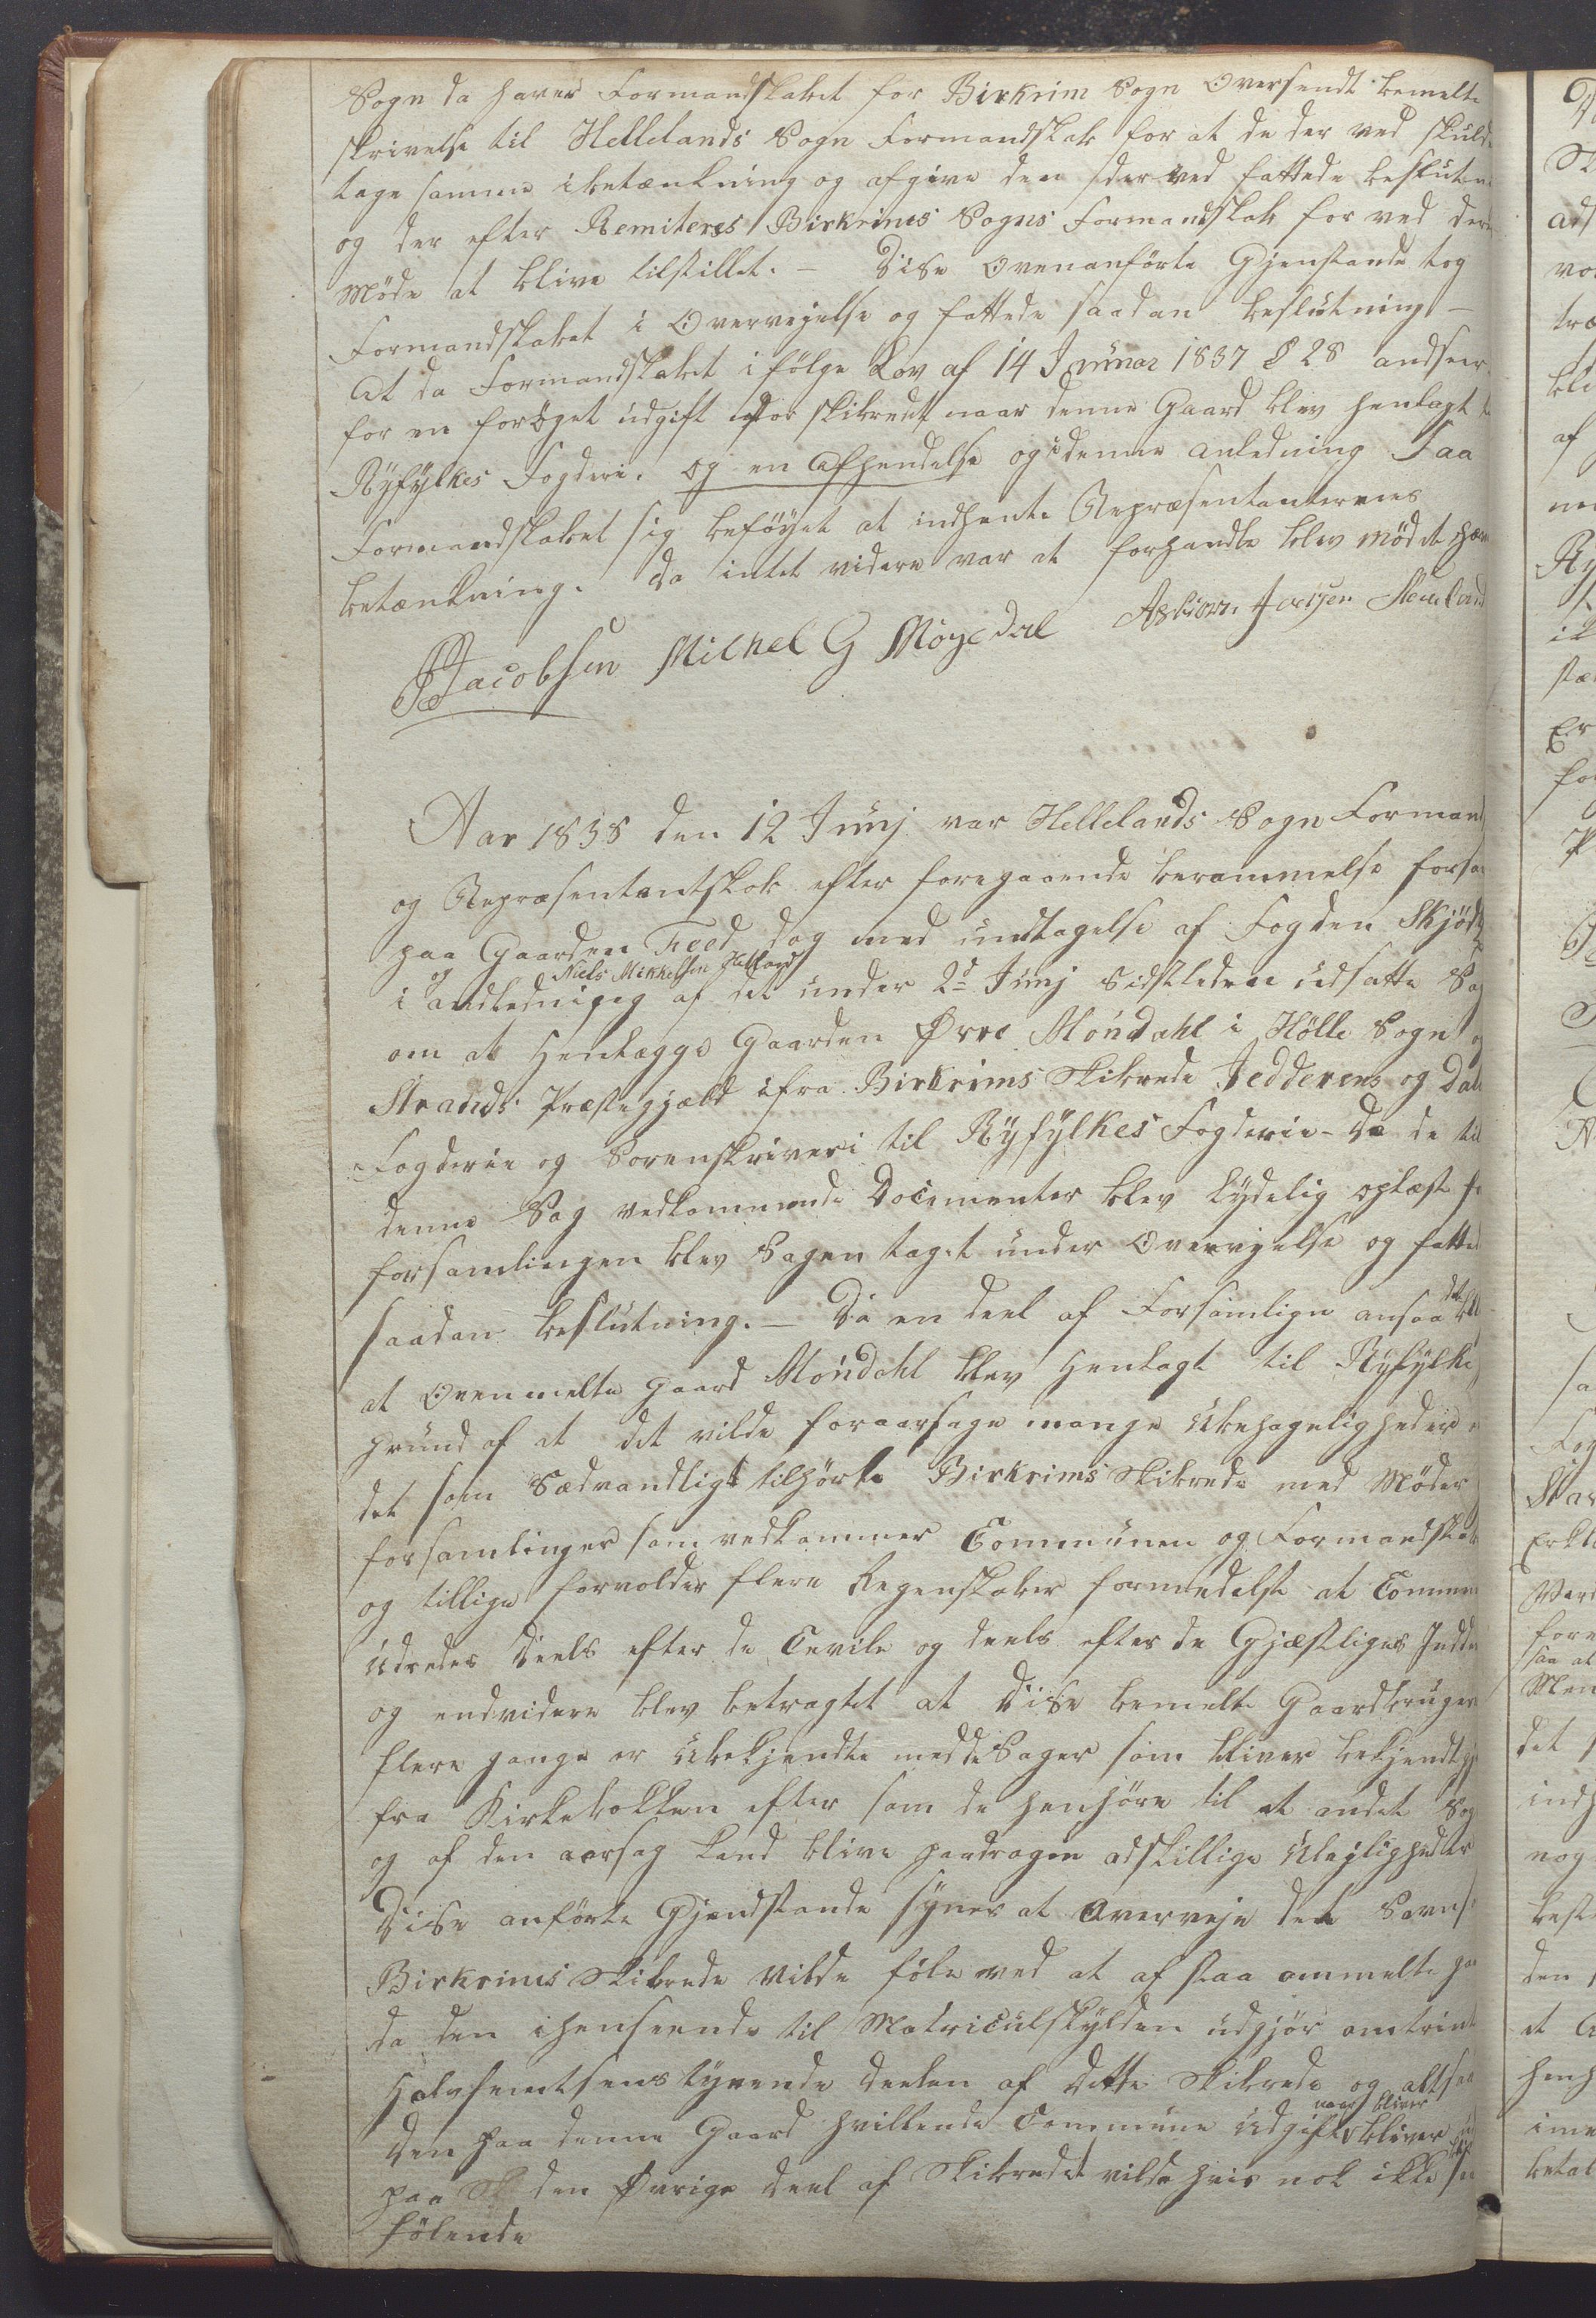 Sogn da haver Formandskabet for Birkrim Sogn Oversendt bemelte
skrivelse til Hellelands Sogn Formandskab for at de der ved skulde
tage samme i betænkning og afgive den der ved fattede beslutn
og der efter Remiteres Birkrims Sogns Formandskab for ved dere
Møde at blive tilstillet. - Dise Ovenanførte Gjenstande tog
Formandskabet i Overvejelse og fattede saadan beslutning -
At da Formandskabet i følge Lov af 14 Januar 1837 § 28 andseer
for en forøget udgift for skibredet naar denne Gaard blev henlagt t
Ryfylkes Fogderi. og en Afhendelse og i denne anledning Saa
Formandskabet sig beføyet at indhente Repræsentanternes
betænkning. Da intet videre var at forhandle blev mødet hæv
Jacobsen Mikhel G Møgedal Asbiørn Joesen Sleveland
Aar 1838 den 12 Junj var Hellelands Sogn Formand
og Repræsentantskab efter foregaaende berammelse forsa
paa Gaarden Feed dag med undtagelse af Fogden Skjødt
og Niels Mikkelsen Hetland
i andledniging af det under 2d Junj Sidstleden udsatte Sag
om at Henlægge Gaarden Øvre Móndahl i Hølle Sogn og
Strands Præstegjæld ifra Birkrims Skibrede Jedderens og Dale
Fogderie og Sorenskriveri til Ryfylkes Fogderie - Da de til
denne Sag vedkommende Documenter blev lydelig oplæst f
forsamlingen blev Sagen taget under Overvejelse og fatte
saadan beslutning. - Da en deel af Forsamlign ansaa det
at Ovenmelte gaard Móndahl blev Henlagt til Ryfylke
grund af at det vilde foraarsage mange Ubehageligheder
det som Sædvandligt tilhørte Birkrims Skibrede med Møder
forsamlinger som vedkommer Communen og Formandskab
og tillige forvolder flere Regenskaber formedelst at Commun
Udredes Deels efter de Cevile og deels efter de Gjæstliges Indde
og endvidere blev betragtet at Dise bemelte Gaardbruger
flere gange er Ubekjendte med de Sager som bliver bekjendtgj
fra Kirkebakken efter som de henhøre til et andet Sog
og af den aarsag kand blive paadragen adskillige Ulejligheder
Dise anførte Gjendstande synes at Overveje det Savn s
Birkrims Skibrede Vilde føle ved at af staa ommelte ga
da den i henseende til Matriculskylden udgjør omtrint
Halvfemtsens tyvende deelen af dette Skibrede og altsaa
naar bliver
Den paa denne Gaard hvillende Commune Udgift bliver
paa den Øvrige deel af Skibredet vilde hvis nok ikke
følende